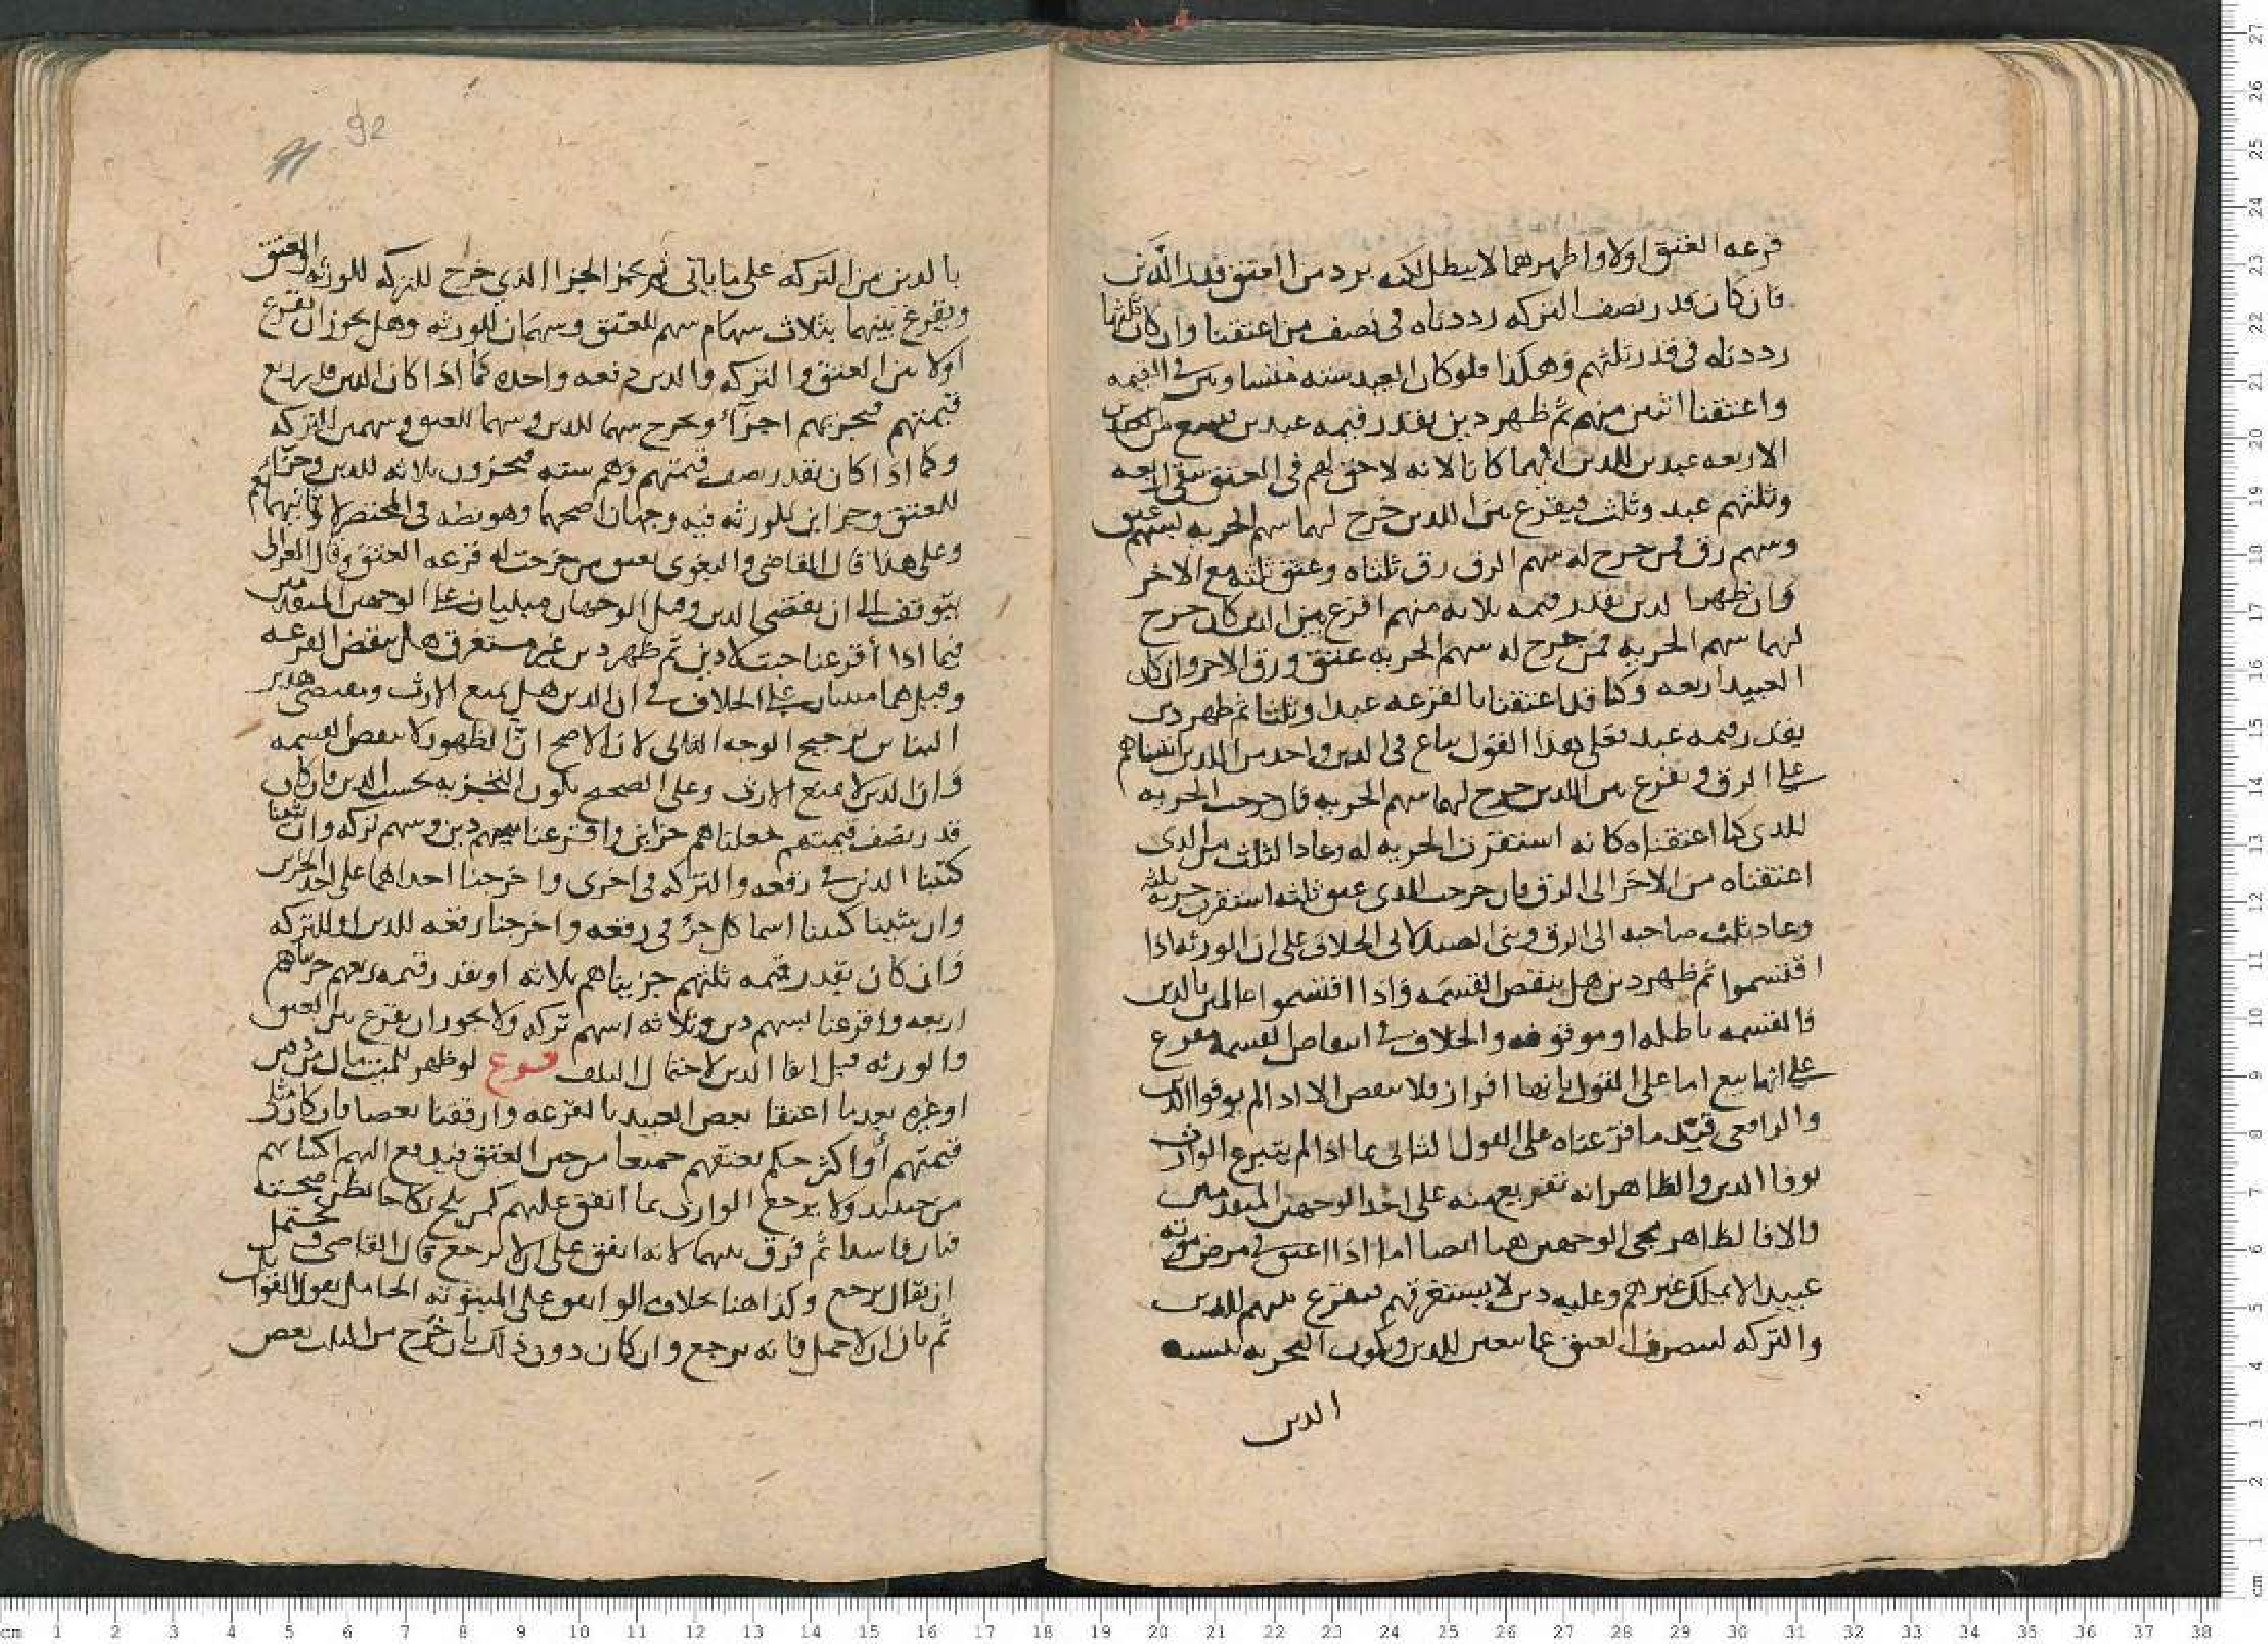 قرعه العتق اولا واظهرهما لا يبطل لكنه يرد من العتق قدر الدين
فان كان قدر نصف التركه رددناه فى نصف من اعتقنا وان كان ثلثها
رددناه فى قدر ثلثهم وهكذا فلو كان العبيد سته متساوين في القيمه
واعتقنا اثنين منهم ثم ظهر دين بقدر قيمه عبدين فبيع من
الاربعه عبدين للدين ايهما كانا لانه لا حق لهم فى العتق بقى اربعه
وثلثهم عبد وثلث فيقرع بين اللذين خرج لهما سهم الحريه بسهم عتق
وسهم رق فمن خرج له سهم الرق رق ثلثاه وعتق ثلثه مع الاخر
وان ظهر الدين بقدر قيمه ثلاثه منهم اقرع بين الذين كان خرج
لهما سهم الحريه فمن خرج له سهم الحريه عتق ورق الاخر وان كان
العبيد اربعه وكنا قد اعتقنا بالقرعه عبدا وثلثا ثم ظهر دين
بقدر قيمه عبد فعلى هذا القول يباع فى الدين واحد من اللذين
على الرق ويقرع بين اللذين خرج لهما سهم الحريه فان خرجت الحريه
للذى كنا اعتقناه كانه استقرت الحريه له وعاد الثلث من الذى
اعتقناه من الاخر الى الرق فان خرجت للذى عتق ثلثه استقرت حريه ثلثه
وعاد ثلث صاحبه الى الرق وبنى الصيدلانى الخلاف على ان الورثه اذا
اقتسموا ثم ظهر دين هل ينقض القسمه واذا اقتسموا عالمين بالدين
فالقسمه باطله او موقوفه والخلاف في انتقاض القسمه مفرع
على انها بيع اما على القول بانها افراز فلا ينقض الا اذا لم يوفوا الدين
والرافعى قيد ما فرعناه على القول الثانى بما اذا لم يتبرع الوارث
بوفا الدين والظاهر انه تفريع منه على احد الوجهين المتقدمين
والا فالظاهر مجى الوجهين هنا ايضا اما اذا اعتق في مرض موته
عبيدا لا يملك غيرهم وعليه دين لا يستغرقهم فيقرع بينهم للدين
والتركه ليصرف العتق عما يتعين للدين ويكون التجزيه بنسبه
الدين
92
بالدين من التركه على ما ياتى ثم يجز الجزا الذى خرج للتركه للورثه والعتق
ويقرع بينهما بثلاث سهام سهم للعتق وسهمان للورثه وهل يجوز ان يقرع
اولا بين العتق والتركه والدين دفعه واحده كما اذا كان الدين قدر ربع
قيمتهم فيجزيهم اجزآء ويخرج سهما للدين وسهما للعتق وسهمين للتركه
وكما اذا كان بقدر نصف قيمتهم وهم سته فيجزون ثلاثه للدين وجزا
للعتق وجزاين للورثه فيه وجهان اصحهما وهو نصه فى المختصر لا وثانيهما نعم
وعلى هذا قال القاضى والبغوى يعتق من خرجت له قرعه العتق وقال الغزالى
يتوقف الى ان يقضى الدين وقيل الوجهان مبنيان على الوجهين المتقدمين
فيما اذا أقرعنا حيث لا دين ثم ظهر دين غير مستغرق هل ينقض القرعه
وقيل هما مبنيان على الخلاف في ان الدين هل يمنع الارث ومقتضى هذين
البناين ترجيح الوجه الثانى لان الاصح ان الظهور لا ينقض القسمه
وان الدين لا يمنع الارث وعلى الصحيح يكون التجزيه بحسب الدين فان كان
قدر نصف قيمتهم جعلناهم جزاين واقرعنا بينهم دين وسهم تركه وان شينا
كتبنا الدين في رقعه والتركه فى اخرى واخرجنا احداهما على احد الجزاين
وان شينا كتبنا اسما كل جزء فى رقعه واخرجنا رقعه للدين او للتركه
وان كان بقدر قيمه ثلثهم جزيناهم ثلاثه او بقدر قيمه ربعهم جزيناهم
اربعه واقرعنا بسهم دين وثلاثه اسهم تركه ولا يجوز ان يقرع بين العتق
والورثه قبل ايفا الدين لاحتمال التلف فرع لو ظهر للميت مال من دين
او غيره بعدما اعتقنا بعض العبيد بالقرعه وارققنا بعضا فان كان مثلى
قيمتهم أو اكثر حكم بعتقهم جميعا من حين العتق فيدفع اليهم اكسابهم
من حينيذ ولا يرجع الوارث بما انفق عليهم كمن نكح نكاحا يظن صحته
فبان فاسدا ثم فرق بينهما لانه انفق على ان لا يرجع قال القاضى ويحتمل
ان يقال يرجع وكذا هنا بخلاف لو انفق على المبتوته الحامل بقول القوابل
ثم بان ان لا حمل فانه يرجع وان كان دون ذلك بان خرج من الثلث بعض